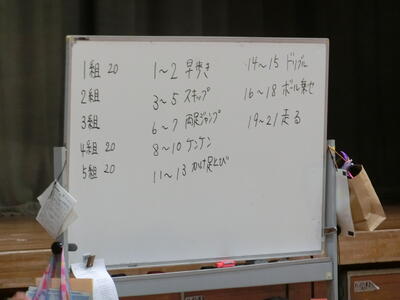 1組 20
2組
3組
4組 20
5組 20
1～2 早歩き
3～5 スキップ
6～7 両足ジャンプ
8～10 ケンケン
11～13 かけ足とび
14～15 ドリブル
16～18 ボール乗せ
19～21 走る